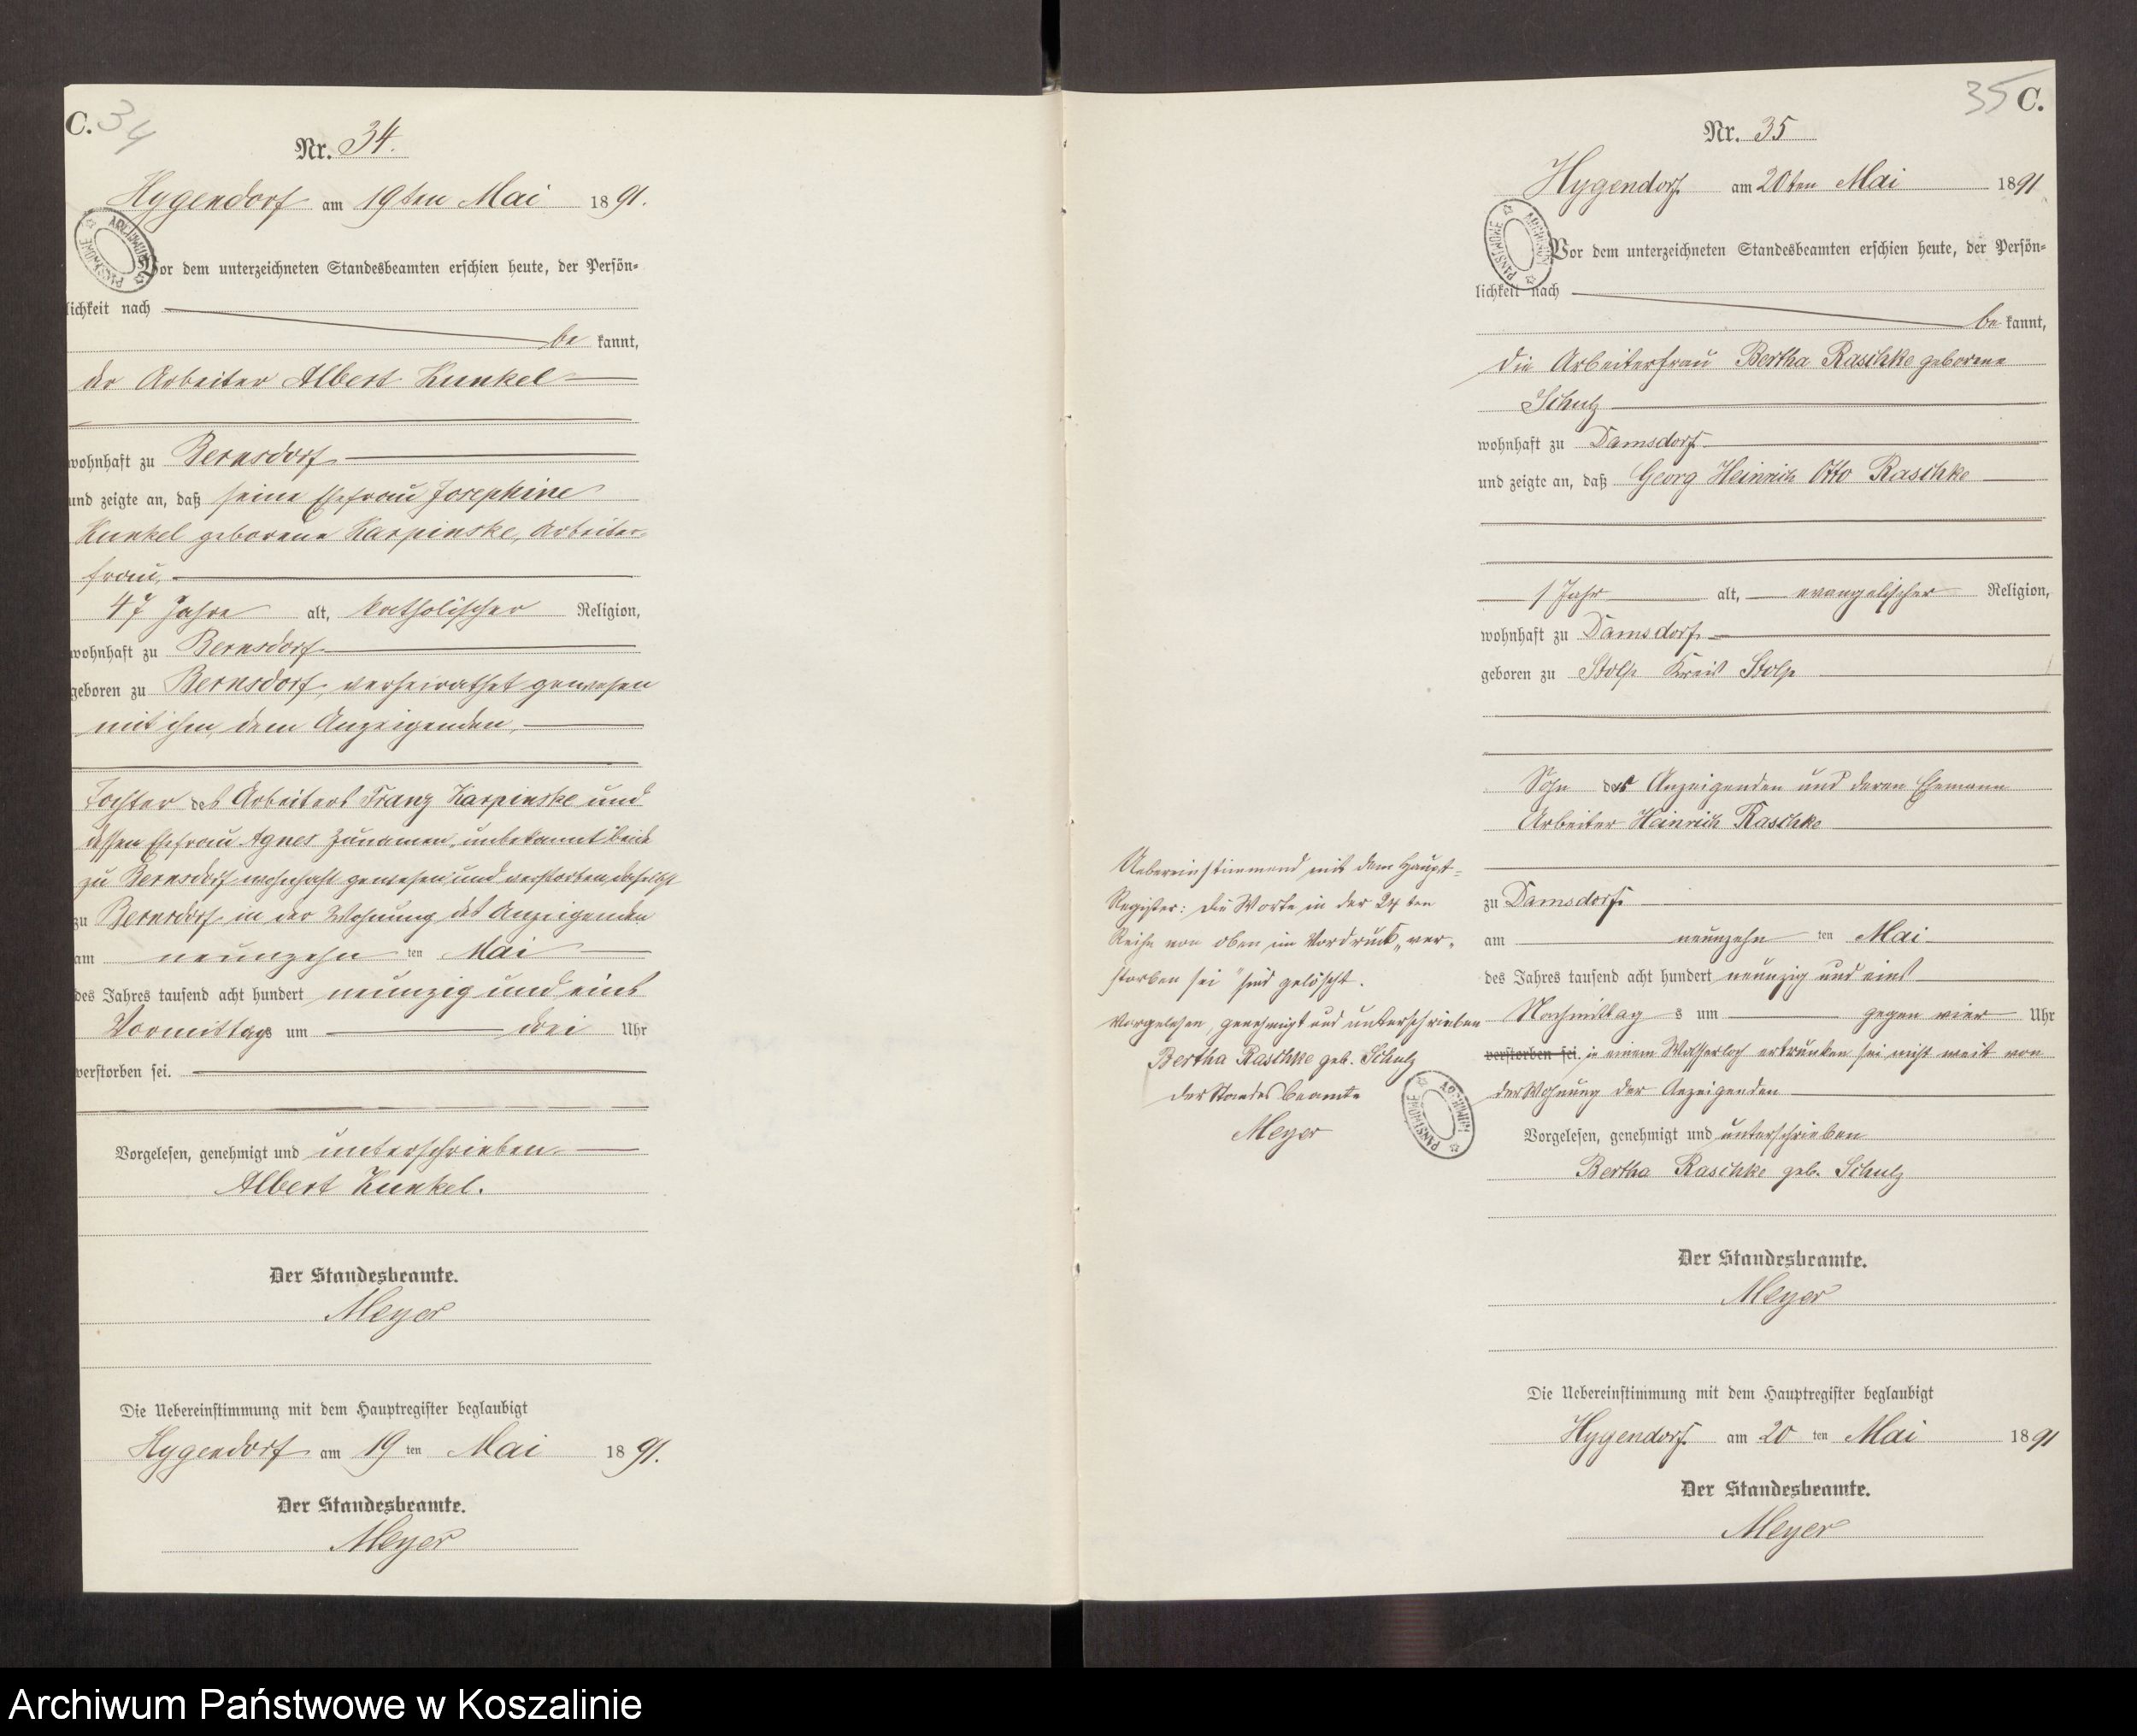 C. 34
Nr. 34.
Hygendorf am 19ten Mai 1891.
Vor dem unterzeichneten Standesbeamten erschien heute, der Persön-
lichkeit nach
bekannt,
der Arbeiter Albert Kunkel
wohnhaft zu Bernsdorf
und zeigte an, daß seine Ehefrau Josephine
Kunkel geborene Karpinske, Arbeiter-
frau,
47 Jahre alt, katholischer Religion,
wohnhaft zu Bernsdorf
geboren zu Bernsdorf, verheirathet gewesen
mit ihm, dem Anzeigenden,
Tochter des Arbeiters Franz Karpinske und
dessen Ehefrau Agnes Zunamen unbekannt beide
zu Bernsdorf wohnhaft gewesen und verstorben daselbst
zu Bernsdorf in der Wohnung des Anzeigenden
am neunzehn ten Mai
des Jahres tausend acht hundert neunzig und eins
Vormittags um drei Uhr
verstorben sei.
Vorgelesen, genehmigt und unterschrieben
Albert Kunkel.
Der Standesbeamte.
Meyer
Die Uebereinstimmung mit dem Hauptregister beglaubigt
Hygendorf am 19 ten Mai 1891.
Der Standesbeamte.
Meyer
35 C.
Nr. 35
Hygendorf am 20ten Mai 1891
Vor dem unterzeichneten Standesbeamten erschien heute, der Persön-
lichkeit nach
bekannt,
die Arbeiterfrau Bertha Raschke geborene
Schulz
wohnhaft zu Damsdorf
und zeigte an, daß Georg Heinrich Otto Raschke
1 Jahr alt, evangelischer Religion,
wohnhaft zu Damsdorf
geboren zu Stolp Kreis Stolp
Sohn der Anzeigenden und deren Ehemann
Arbeiter Heinrich Raschke
zu Damsdorf
am neunzehn ten Mai
des Jahres tausend acht hundert neunzig und eins
Nachmittag s um gegen vier Uhr
verstorben sei. in einem Wasserloch ertrunken sei nicht weit von
der Wohnung der Anzeigenden
Vorgelesen, genehmigt und unterschrieben
Bertha Raschke geb. Schulz
Der Standesbeamte.
Meyer
Die Uebereinstimmung mit dem Hauptregister beglaubigt
Hygendorf am 20 ten Mai 1891
Der Standesbeamte.
Meyer
Uebereinstimmend mit dem Haupt-
Register: Die Worte in der 24 ten
Reihe von oben im Vordruck "ver-
storben sei" sind gelöscht.
Vorgelesen, genehmigt und unterschrieben
Bertha Raschke geb. Schulz
der Standesbeamte
Meyer
ARCHIWUM PAŃSTWOWE
ARCHIWUM PAŃSTWOWE
ARCHIWUM PAŃSTWOWE
Archiwum Państwowe w Koszalinie